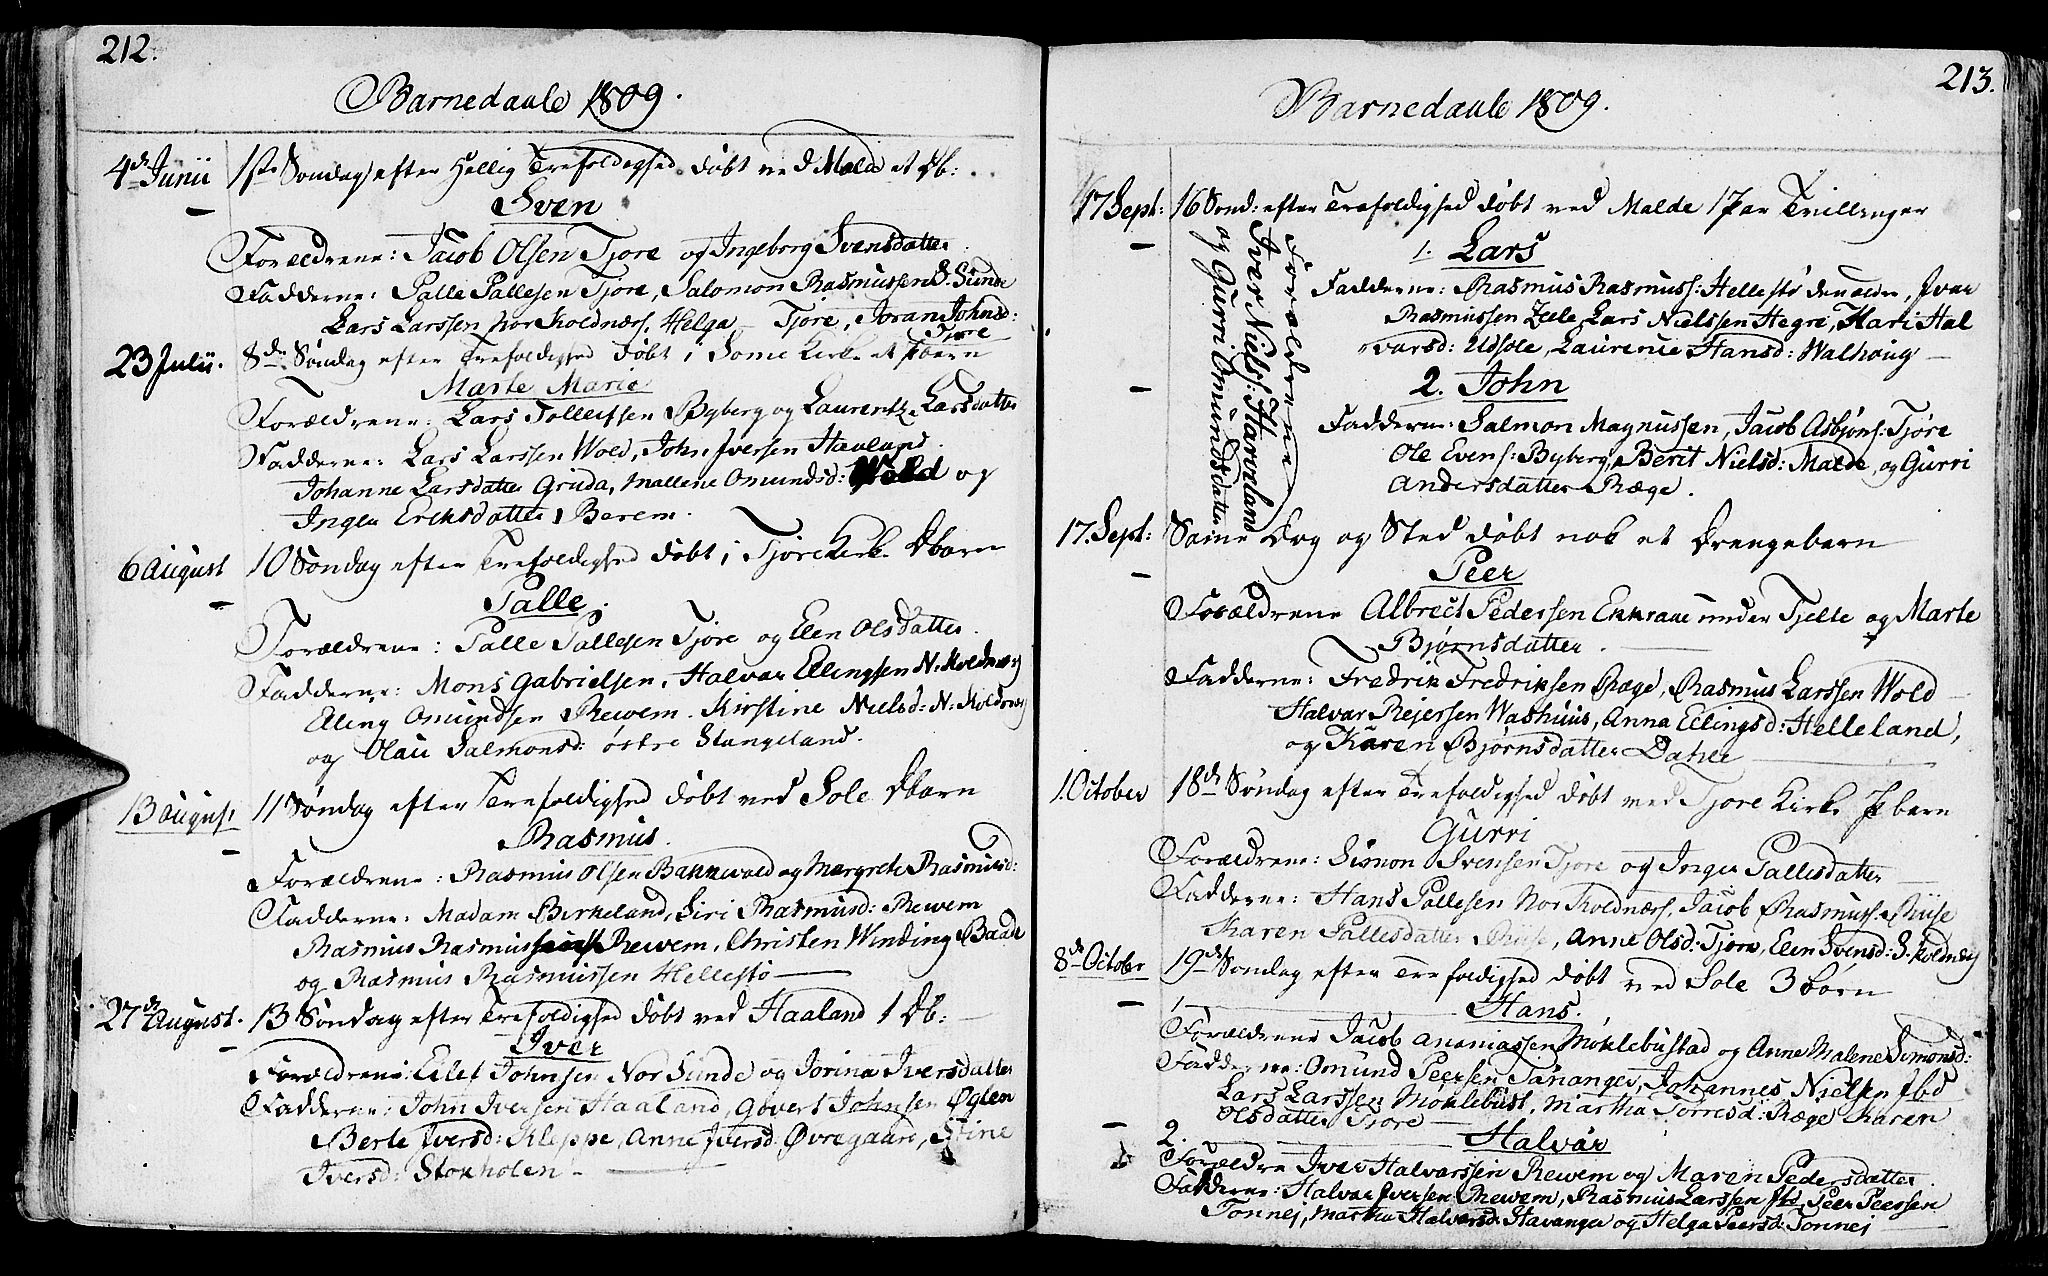 212.
Barnedaab 1809.
4de Junii 1ste Søndag efter Hellig Trefoldighed døbt ved Malde et Db:
Sven
Forældrene: Jacob Olsen Tjore og Ingeborg Svensdatter
Fadderne: Palle Pallesen Tjore, Salomon Rasmussen S. Sunde
Lars Larssen Nor Koldnæs, Helga Tjore, Joran Johnsd:
Tjore
23 Julii. 8de Søndag efter Trefoldighed døbt i Some Kirke et barn
Marte Marie
Forældrene: Lars Tolleifsen Byberg og Laurentze Larsdatter
Fadderne: Lars Larssen Wold, John Iversen Haaland
Johanne Larsdatter Gruda, Mallene Omundsd: Wold og
Inger Eriksdatter Berem.
6 August 10 Søndag efter Trefoldighed døbt i Tjore Kirke Dbarn
Palle.
Forældrene: Palle Pallesen Tjore og Elen Olsdatter.
Fadderne: Mons Gabrielsen, Halvar Ellingsen N. Koldnæs
Elling Omundsen Rewem. Kirstine Nielsd: N. Koldnæs
og Olau Salmonsd: østre Stangeland.
13 August 11 Søndag efter Trefoldighed døbt ved Sole Dbarn
Rasmus.
Forældrene: Rasmus Olsen Bakkevold og Margrete Rasmusd:
Fadderne: Madam Birkeland, Siri Rasmusd: Rewem
Rasmus Rasmussen Rewem, Christen Winding Baade
og Rasmus Rasmussen Hellestø
27de August. 13 Søndag efter Trefoldighed døbt ved Haaland 1 Db:
Iver
Forældrene: Eilef Johnsen Nor Sunde og Jorina Iversdatter
Fadderne: John Iversen Haaland, Govert Johnsen Øglen
Berte Iversd: Kleppe, Anne Iversd Øvregaard, Stine
Iversd: Stokholen
213.
Barnedaab 1809.
17 Sept: 16 Sønd: efter Trefoldighed døbt ved Malde 1 Par Tvillinger
1. Lars
Forældrene
Iver Nielss: Haaland
og Gurri Omundsdatter
Fadderne: Rasmus Rasmuss: Hellestø den ældre, Ivar
Rasmussen Zele, Lars Nielssen Hegre, Kari Hal
varsd: Udsole, Laurense Hansd: Walhoug
2. John
Fadderne: Salmon Magnussen, Jacob Asbjøns: Tjøre
Ole Evens: Byberg, Berit Nielsd: Malde, og Gurri
Andersdatter Ræge.
17. Sept: Same Dag og Sted døbt nok et Drengebarn
Peer
Forældrene Albrect Pedersen under Tjelte og Marte
Bjørnsdatter.
Fadderne: Fredrik Fredriksen Ræge, Rasmus Larssen Wold
Halvar Rejersen Washuus, Anna Ellingsd: Helleland,
og Karen Bjørnsdatter
1. October 18de Søndag efter Trefoldighed døbt ved Tjore Kirke Pbarn
Gurri
Forældrene: Simon Svensen Tjore og Inger Pallesdatter
Fadderne: Hans Pallesen Nor Koldnæs, Jacob Rasmuss. Riise
Karen Pallesdatter Riise, Anne Olsd: Tjore, Elen Svensd: S. Koldnæs
8de October 19de Søndag efter Trefoldighed døbt ved Sole 3 børn
1. Hans.
Forældrene Jacob Ananiassen Møklebustad og Anne Malene Simonsd:
Fadderne: Omund Peersen Tananger, Johannes Nielsen Ibd
Lars Larssen Møklebust, Martha Torresd: Ræge Karen
Olsdatter Tjore
2. Halvar
Forældre Iver Halvarssen Rewem og Maren Pedersdatter.
Fadderne: Halvar Iversen Rewem, Rasmus Larssen Ibd. Peer Peersen
Tonnej, Martha Halvarsd: Stavanger og Helga Peersd: Tonnej